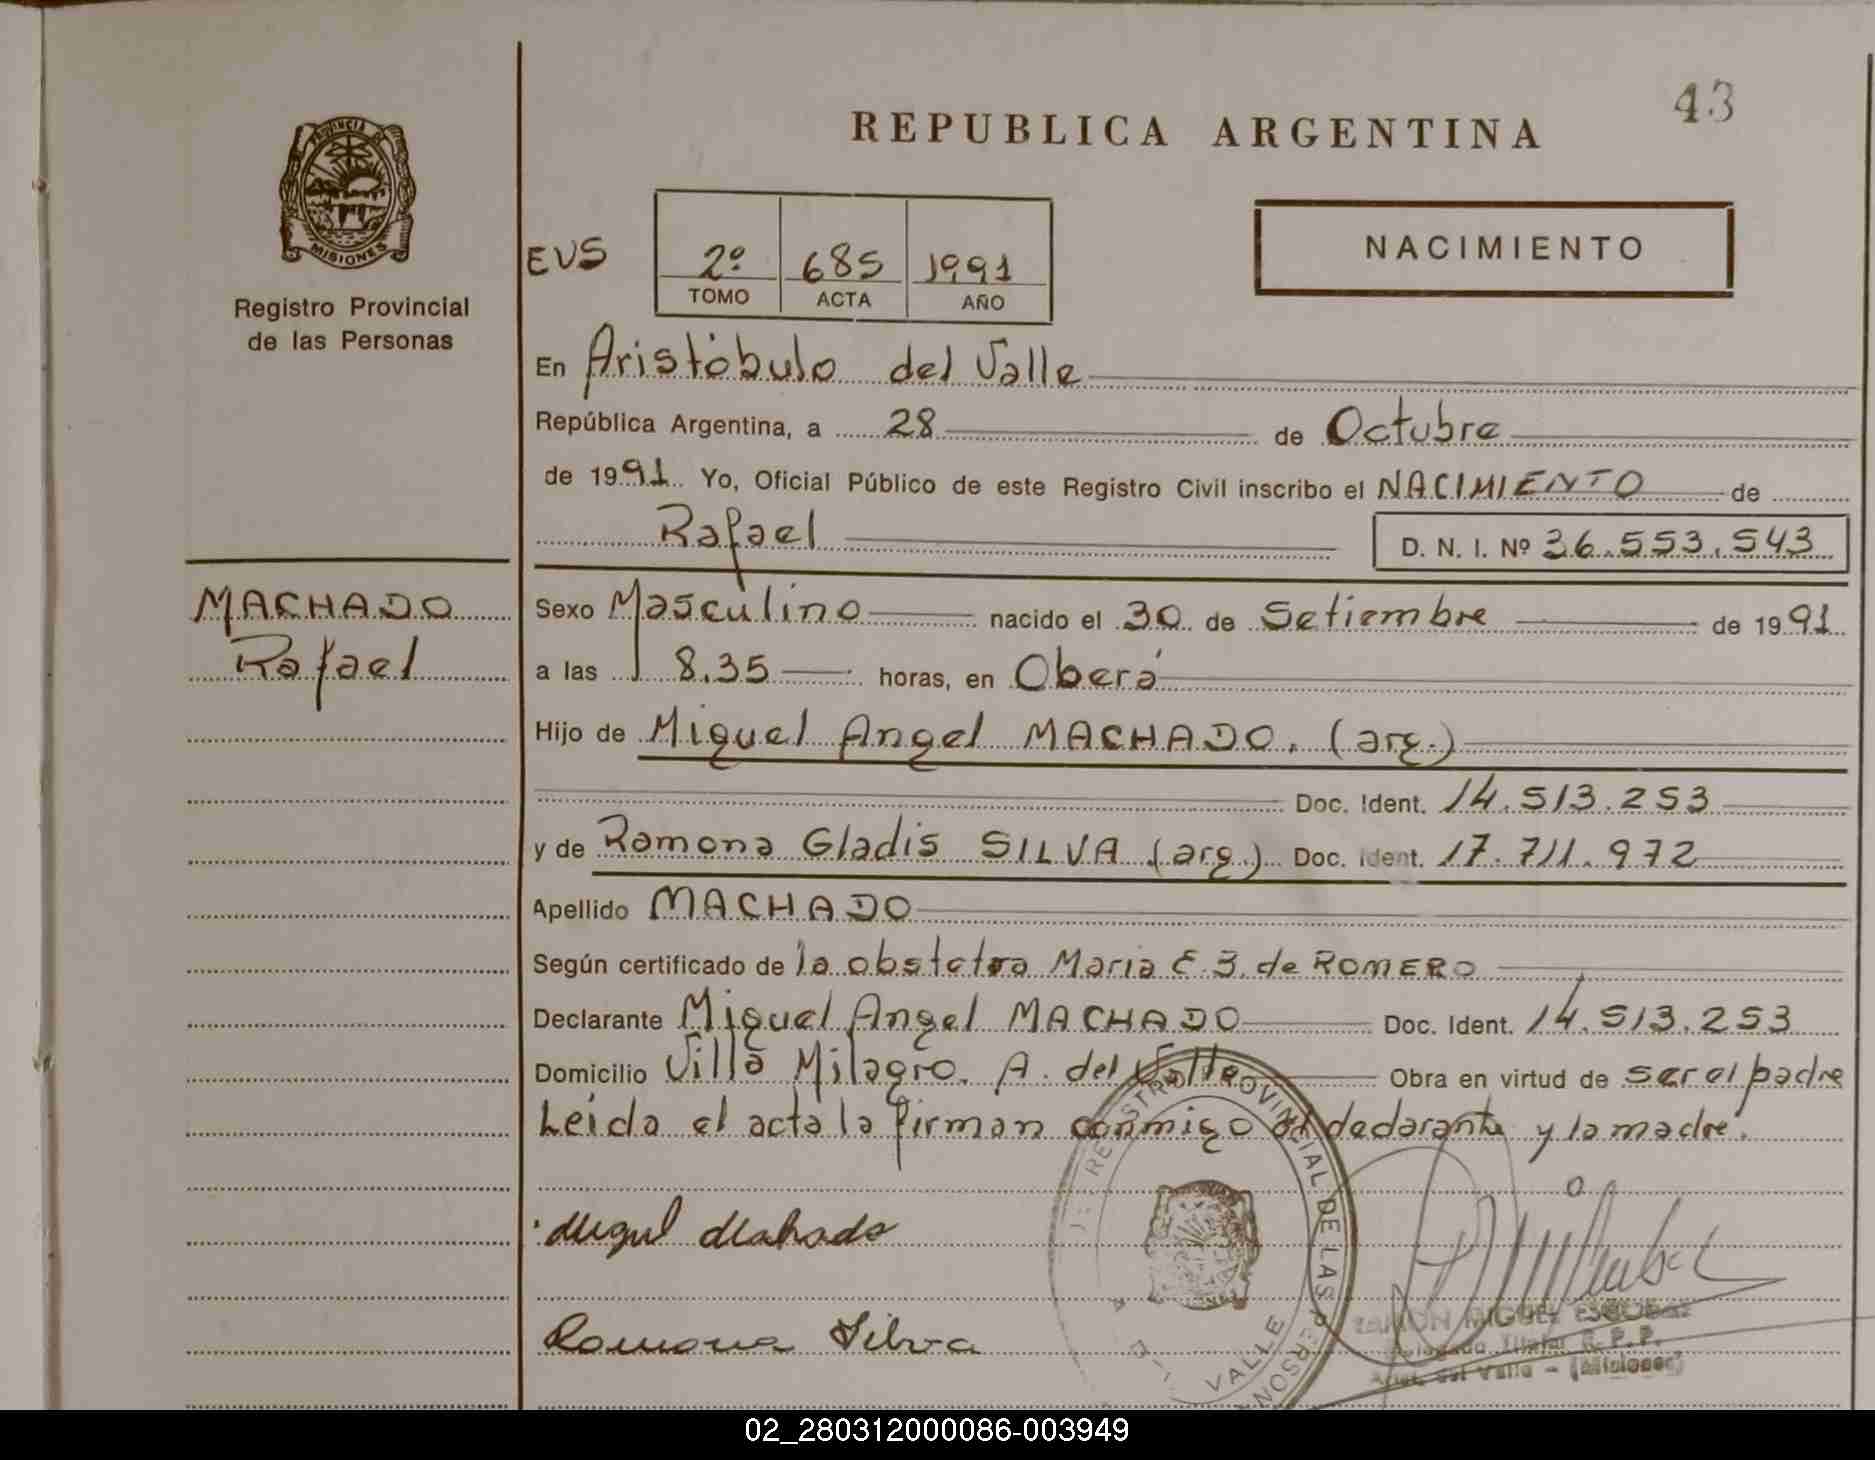 43
REPUBLICA ARGENTINA
PROVINCIA DE
MISIONES
Registro Provincial
de las Personas
EVS
2º 685 1991
TOMO ACTA AÑO
NACIMIENTO
En Aristóbulo del Valle
República Argentina, a 28 de Octubre
de 1991 Yo, Oficial Público de este Registro Civil inscribo el NACIMIENTO de
Rafael
D. N. I. Nº 36.553.543
MACHADO
Rafael
Sexo Masculino nacido el 30 de Setiembre de 1991
a las 8.35 horas, en Oberá
Hijo de Miguel Angel MACHADO. (arg.)
Doc. Ident. 14.513.253
y de Ramona Gladis SILVA (arg.) Doc. Ident. 17.711.972
Apellido MACHADO
Según certificado de la obstetra Maria E. B. de ROMERO
Declarante Miguel Angel MACHADO Doc. Ident. 14.513.253
Domicilio Villa Milagro. A. del Valle Obra en virtud de ser el padre
Leida el acta la firman conmigo el declarante y la madre.
Miguel Machado
Ramona Silva
REGISTRO PROVINCIAL DE LAS PERSONAS
VALLE
RAMON MIGUEL ESCOBAR
Delegado Titular R. P. P.
Arist. del Valle - (Misiones)
02_280312000086-003949